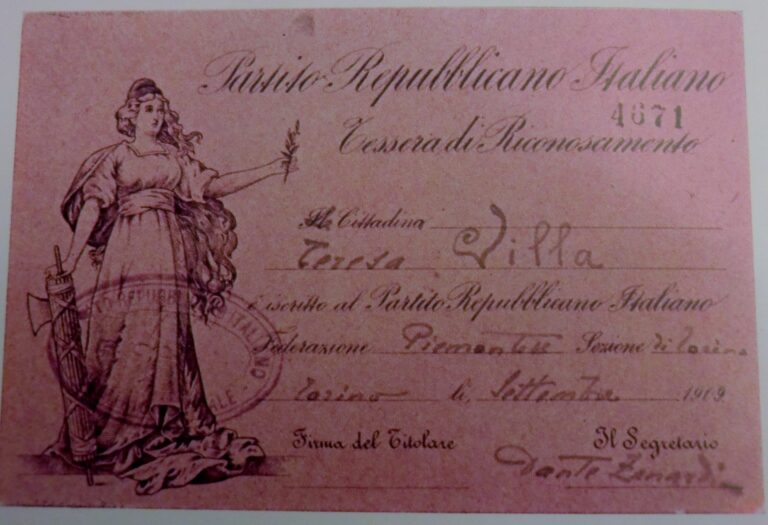 Partito Repubblicano Italiano
4671
Tessera di Riconoscimento
Cittadina
Teresa Villa
è iscritto al Partito Repubblicano Italiano
Federazione Piemontese Sezione di Torino
Torino li, Settembre 1919
Firma del Titolare Il Segretario
Dante Zanardi